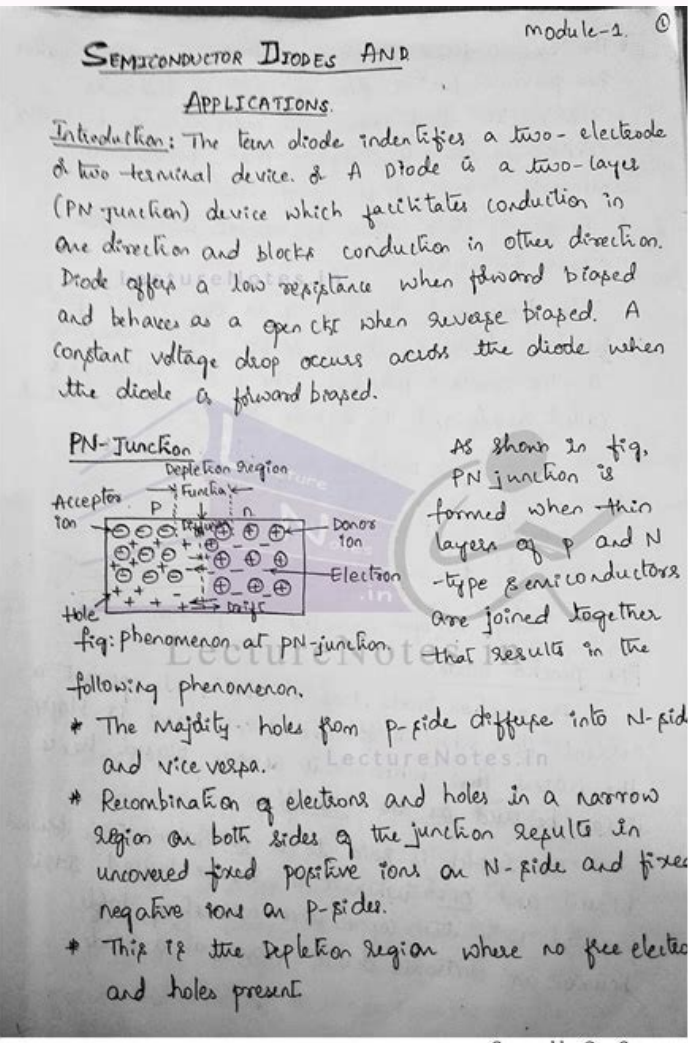 Module-1. ①
SEMICONDUCTOR DIODES AND
APPLICATIONS.
Introduction: The term diode indentifies a two-electrode
& two terminal device. & A Diode is a two-layer
(PN-junction) device which facilitates conduction in
one direction and blocks conduction in other direction.
LectureNotes.in
Diode offers a low resistance when forward biased
and behaves as a open ckt when reverse biased. A
constant voltage drop occurs across the diode when
the diode is forward biased.
PN-Junction
Depletion region
Acceptor ion
P
n
Donor ion
Electron
Hole
Drift
fig: phenomenon at PN-junction.
As shown in fig,
PN junction is
formed when thin
layers of p and N
-type semiconductors
are joined together
that results in the
LectureNotes.in
following phenomenon.
* The majority holes from p-side diffuse into N-sid
and vice versa.
LectureNotes.in
* Recombination of electrons and holes in a narrow
region on both sides of the junction results in
uncovered fixed positive ions on N-side and fixed
negative ions on p-sides.
* This is the Depletion region where no free electro
and holes present